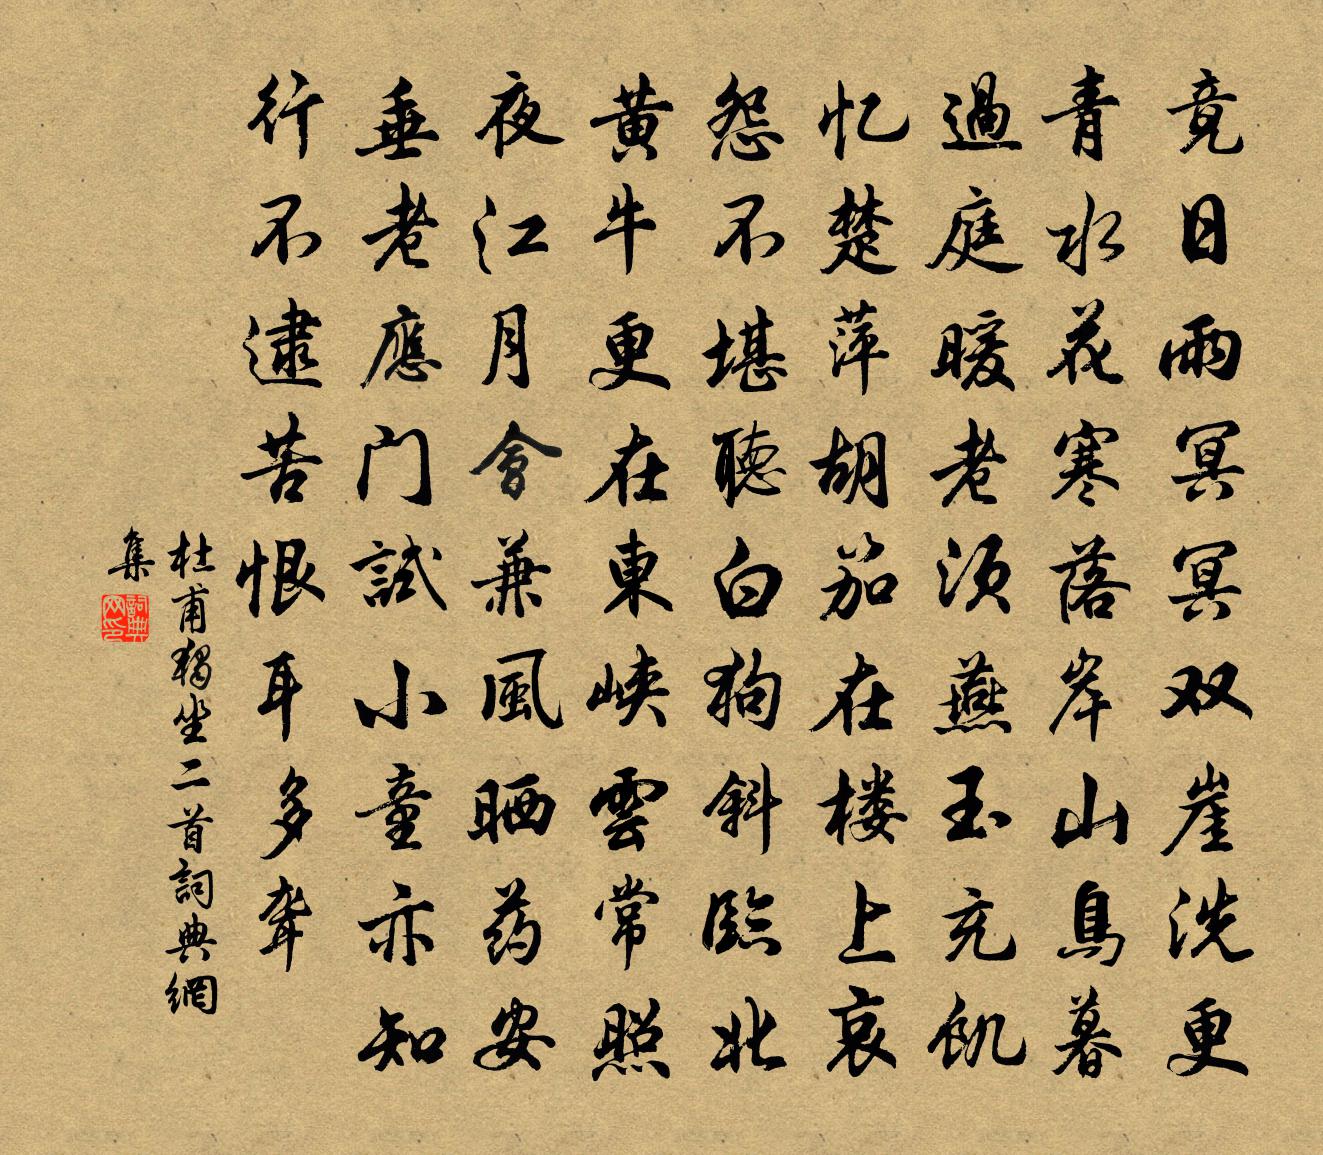 竟日雨冥冥双崖洗更
青水花寒落岸山鳥暮
過庭暖老须燕玉充飢
忆楚萍胡笳在楼上哀
怨不堪聴白狗斜臨北
黄牛更在東峽雲常照
夜江月會兼風晒药安
垂老應门試小童亦知
行不逮苦恨耳多聋
杜甫獨坐二首詞典網
集
詞典网印